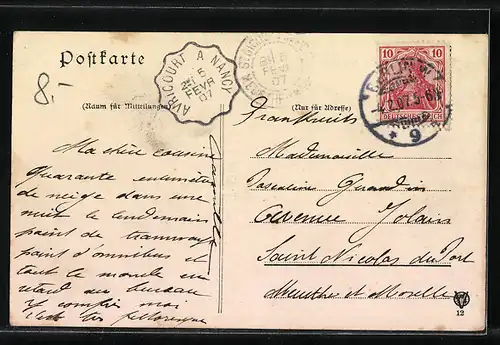 Postkarte
8.-
AVRICOURT A NANCY
5
FEVR
07
10 10
DEUTSCHES REICH
BERLIN W
4.2.07. 5-6
* 9
(Raum für Mitteilungen)
(Nur für Adresse)
Frankreich
Ma chère cousine
Quarante centimètres
de neige dans une
nuit le lendemain
point de tramways
point d'omnibus et
tout le monde en
retard au bureau
y compris moi
C'est très pittoresque
Mademoiselle
Pascaline Girardin
Avenue Jolain
Saint Nicolas du Port
Meurthe et Moselle
12